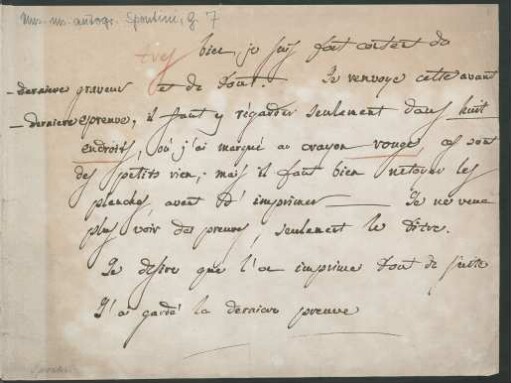 Mus. ms. autogr. Spontini, G. 7
Tres bien, je suis fort content du
graveur et de tout. Je renvoye cette avant
-derniere
-derniere epreuve, il faut y régarder seulement dans huit
endroits, où j'ai marqué au crayon rouge, ce sont
des petits rien, mais il faut bien netoyer les
planches, avant d'imprimer — Je ne veux
plus voir des preuves, seulement le titre.
Je desire que l'on imprime tout de suite
J'ai gardé la derniere preuve